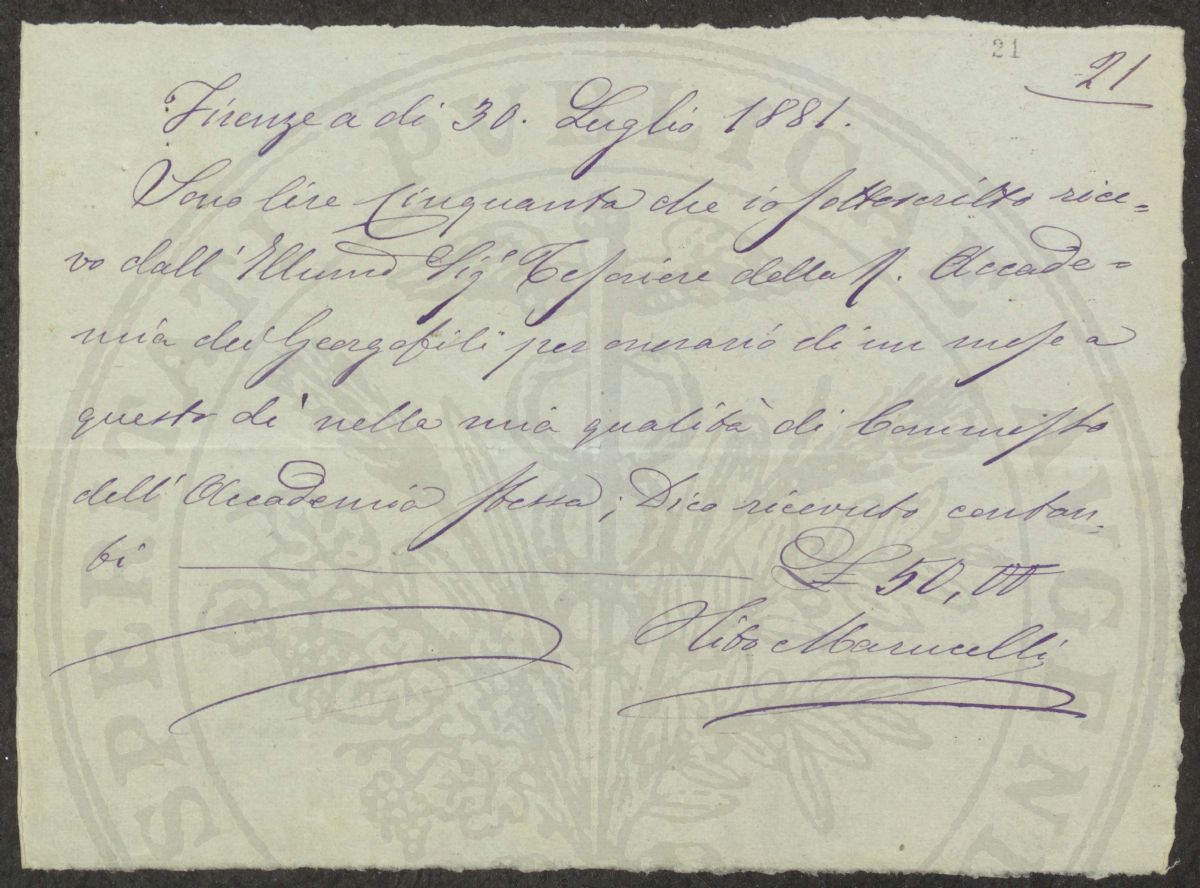 21
21
Firenze a di 30. Luglio 1881.
Sono lire Cinquanta che io sottoscritto rice=
vo dall' Illumo Sigr Tesoriere della R. Accade=
mia dei Georgofili per onorario di un mese a
questo di nella mia qualità di Commesso
dell' Accademia stessa; Dico ricevuto contan-
ti ——— £ 50,00
Marucelli
PVBLICAE